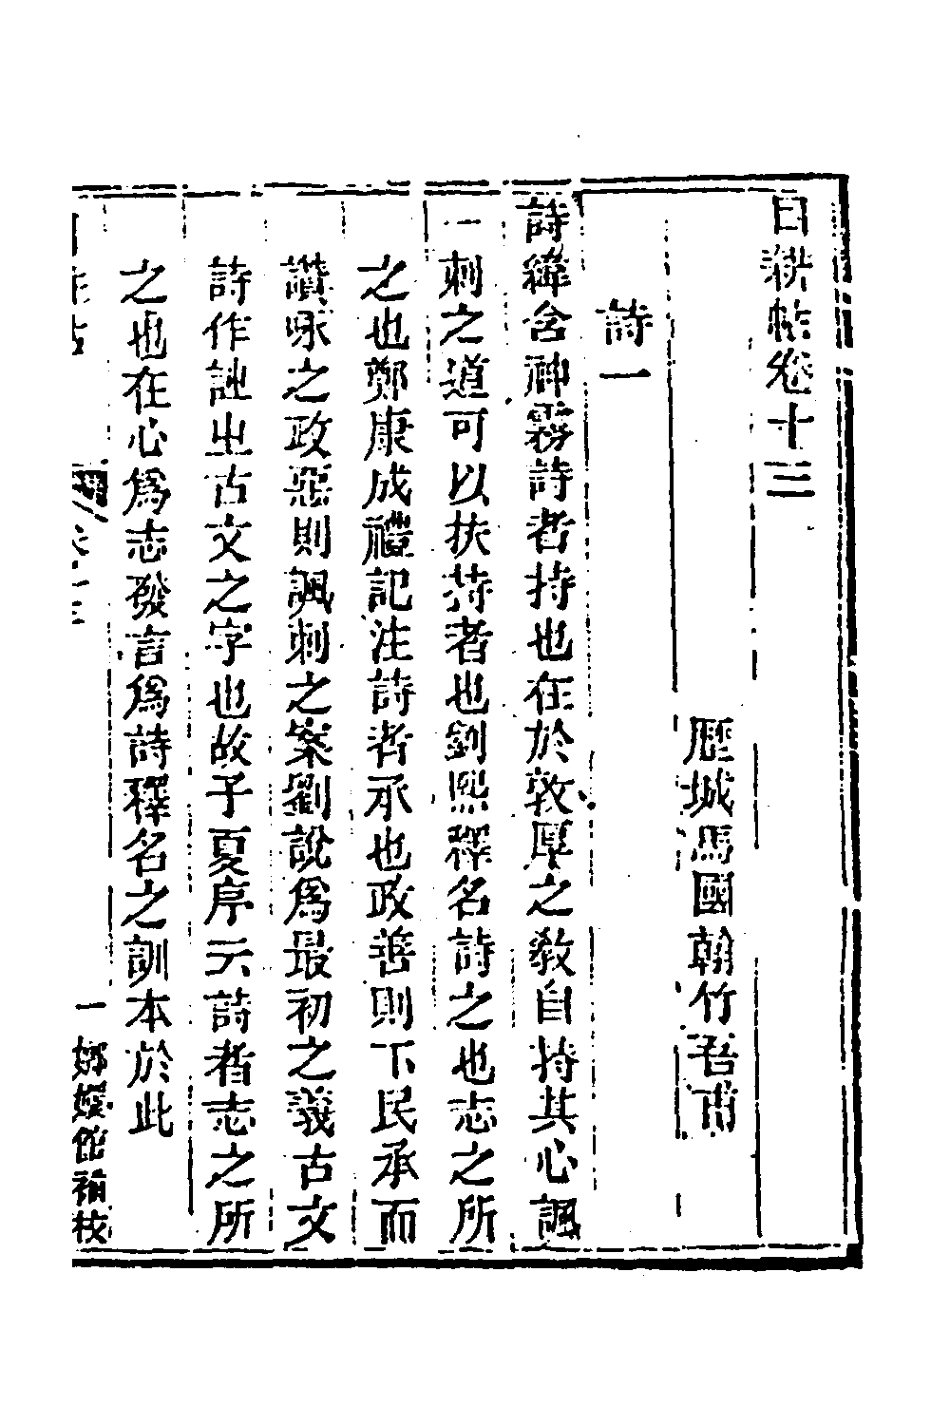 目耕帖卷十三
歷城馬國翰竹吾甫
詩一
詩緯含神霧詩者持也在於敦厚之敎自持其心諷
刺之道可以扶持者也劉熙釋名詩之也志之所
之也鄭康成禮記注詩者承也政善則下民承而
讚咏之政惡則諷刺之案劉說爲最初之義古文
詩作訨㞢古文之字也故子夏序云詩者志之所
之也在心爲志發言爲詩釋名之訓本於此
一
嫏嬛館補校